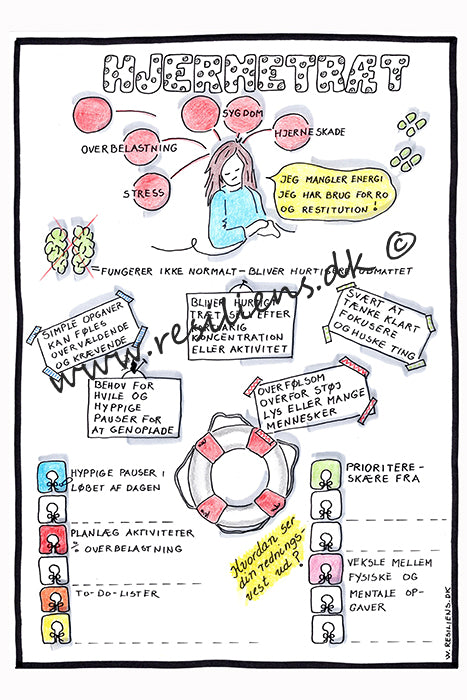 HJERNETRÆT
SYGDOM
OVERBELASTNING
HJERNESKADE
STRESS
JEG MANGLER ENERGI
JEG HAR BRUG FOR RO
OG RESTITUTION!
= FUNGERER IKKE NORMALT – BLIVER HURTIGERE UDMATTET
www.resiliens.dk ©
SIMPLE OPGAVER
KAN FØLES
OVERVÆLDENDE
OG KRÆVENDE
BLIVER HURTIGT
TRÆT SELV EFTER
KORTVARIG
KONCENTRATION
ELLER AKTIVITET
SVÆRT AT
TÆNKE KLART
FOKUSERE
OG HUSKE TING
BEHOV FOR
HVILE OG
HYPPIGE
PAUSER FOR
AT GENOPLADE
OVERFØLSOM
OVERFOR STØJ
LYS ELLER MANGE
MENNESKER
HYPPIGE PAUSER I
LØBET AF DAGEN
PLANLÆG AKTIVITETER
% OVERBELASTNING
TO-DO-LISTER
Hvordan ser
din rednings-
vest ud?
PRIORITERE-
SKÆRE FRA
VEKSLE MELLEM
FYSISKE OG
MENTALE OP-
GAVER
W.RESILIENS.DK